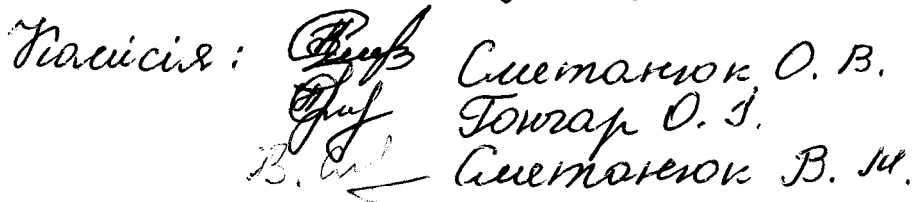 Комісія: Сметанюк О. В.
Гончар О. І.
Сметанюк В. М.